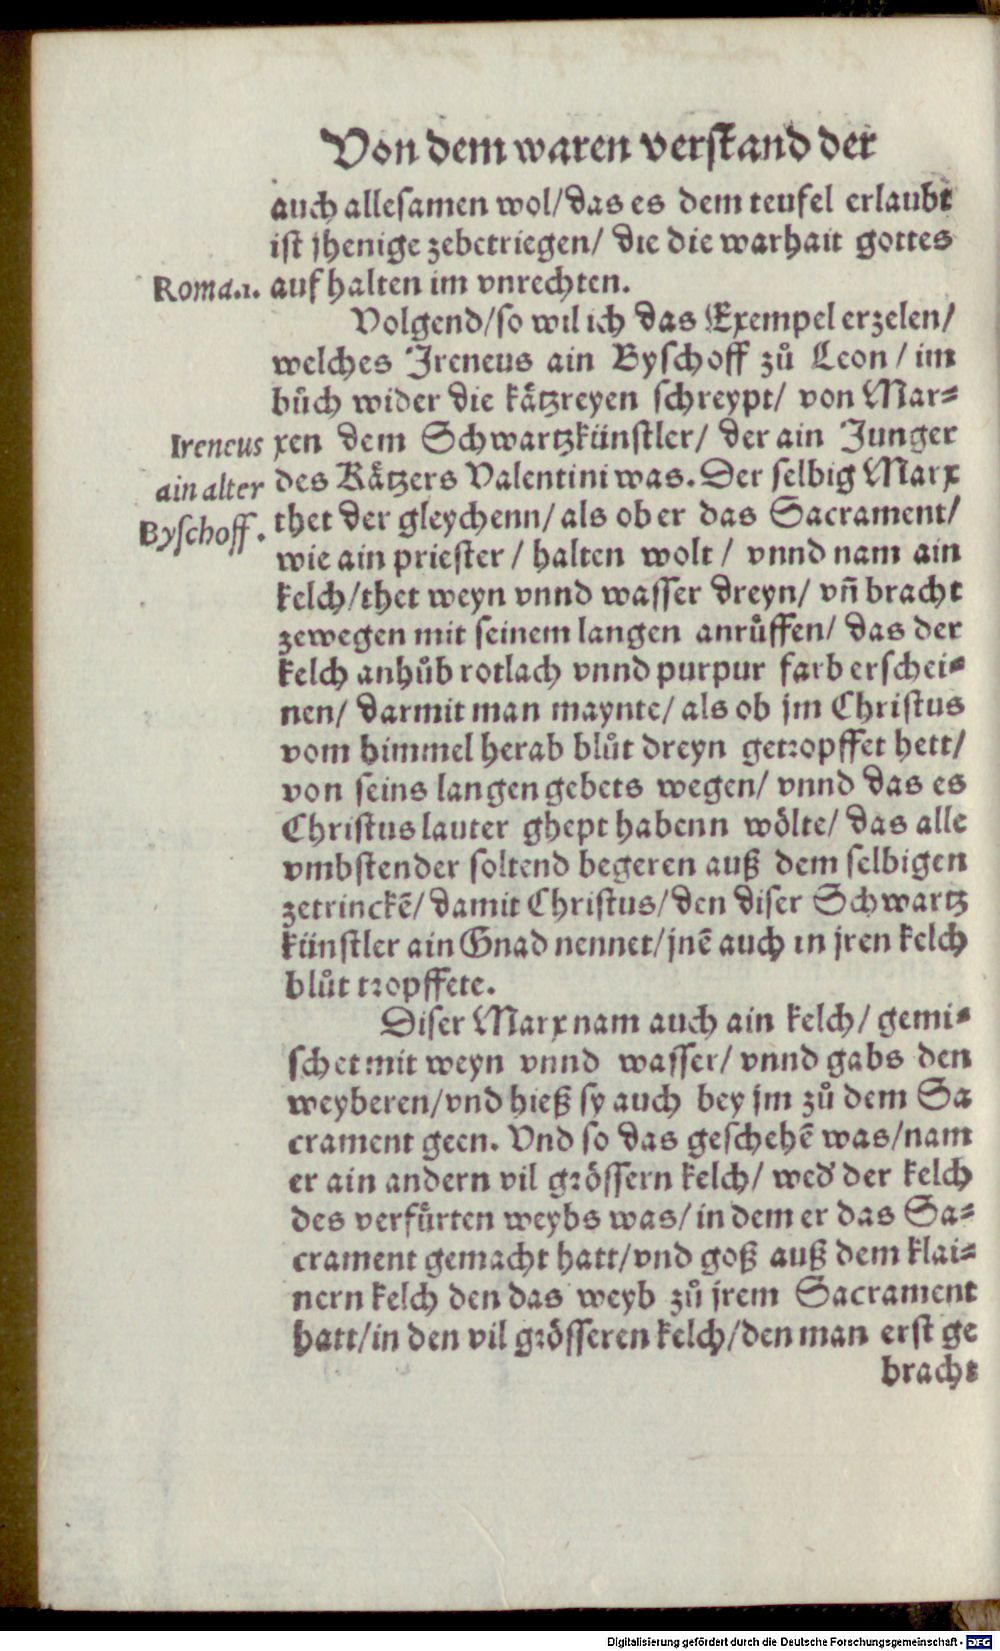 Von dem waren verstand der
auch allesamen wol/das es dem teufel erlaubt
ist jhenige zebetriegen/ die die warhait gottes
Roma.1. auf halten im vnrechten.
Volgend/so wil ich das Exempel erzelen/
welches Jreneus ain Byschoff zů Leon / im
bůch wider die kätzreyen schreypt/ von Mar-
Ireneus xen dem Schwartzkünstler/ der ain Junger
ain alter des Kätzers Valentini was. Der selbig Marx
Byschoff. thet der gleychenn/ als ob er das Sacrament/
wie ain priester / halten wolt / vnnd nam ain
kelch/thet weyn vnnd wasser dreyn/ vñ bracht
zewegen mit seinem langen anrůffen/ das der
kelch anhůb rotlach vnnd purpur farb erschei-
nen/ darmit man maynte/ als ob jm Christus
vom himmel herab blůt dreyn getropffet hett/
von seins langen gebets wegen/ vnnd das es
Christus lauter ghept habenn wölte/ das alle
vmbstender soltend begeren auß dem selbigen
zetrinckē/ damit Christus/den diser Schwartz
künstler ain Gnad nennet/jnē auch in jren kelch
blůt tropffete.
Diser Marx nam auch ain kelch/ gemi-
schet mit weyn vnnd wasser/ vnnd gabs den
weyberen/vnd hieß sy auch bey jm zů dem Sa
crament geen. Vnd so das geschehē was/nam
er ain andern vil grössern kelch/ wed' der kelch
des verfůrten weybs was/ in dem er das Sa-
crament gemacht hatt/vnd goß auß dem klai-
nern kelch den das weyb zů jrem Sacrament
hatt/in den vil grösseren kelch/den man erst ge
bracht
Digitalisierung gefördert durch die Deutsche Forschungsgemeinschaft - DFG